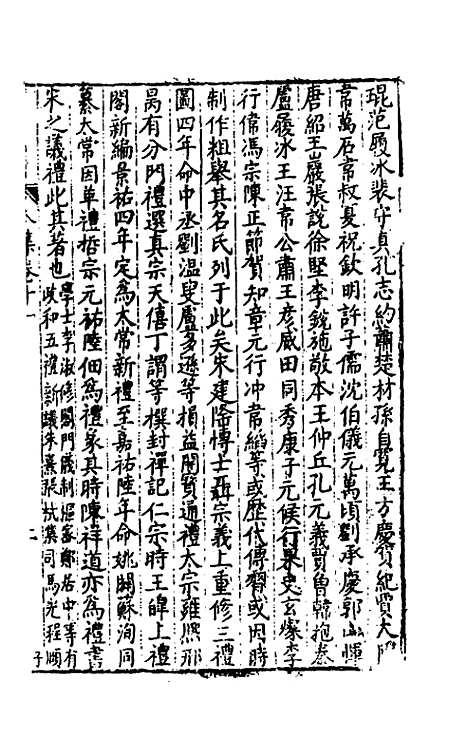 琨范履冰裴守真孔志約蕭楚材孫自覺王方慶賀紀賈大
常萬石韋叔夏祝欽明許子儒沈伯儀元萬頃劉承慶郭山惲
唐紹王嵒張說徐堅李銳施敬本王仲丘孔元義賈曾韓抱素
盧履冰王汪常公肅王彥威田同秀康子元候行果史玄燦李
行偉馮宗陳正節賀知章元行冲韋縚等或歷代傳齊或因時
制作粗舉其名氏列于此矣宋建隆博士聶宗義上重修三禮
圖四年命中丞劉溫叟盧多遜等損益開寶通禮太宗雍熈邢
昺有分門禮選真宗天僖丁謂等撰封禪記仁宗時王皥上禮
閣新編景祐四年定爲太常新禮至嘉祐陸年命姚闢蘇洵同
纂太常因革禮哲宗元祐陸佃爲禮象其時陳祥道亦爲禮書
宋之議禮此其著也學士李淑修閣門儀制 鄭居中等有
政和五禮新議朱熹張栻集司馬光程頤
卷十一
二